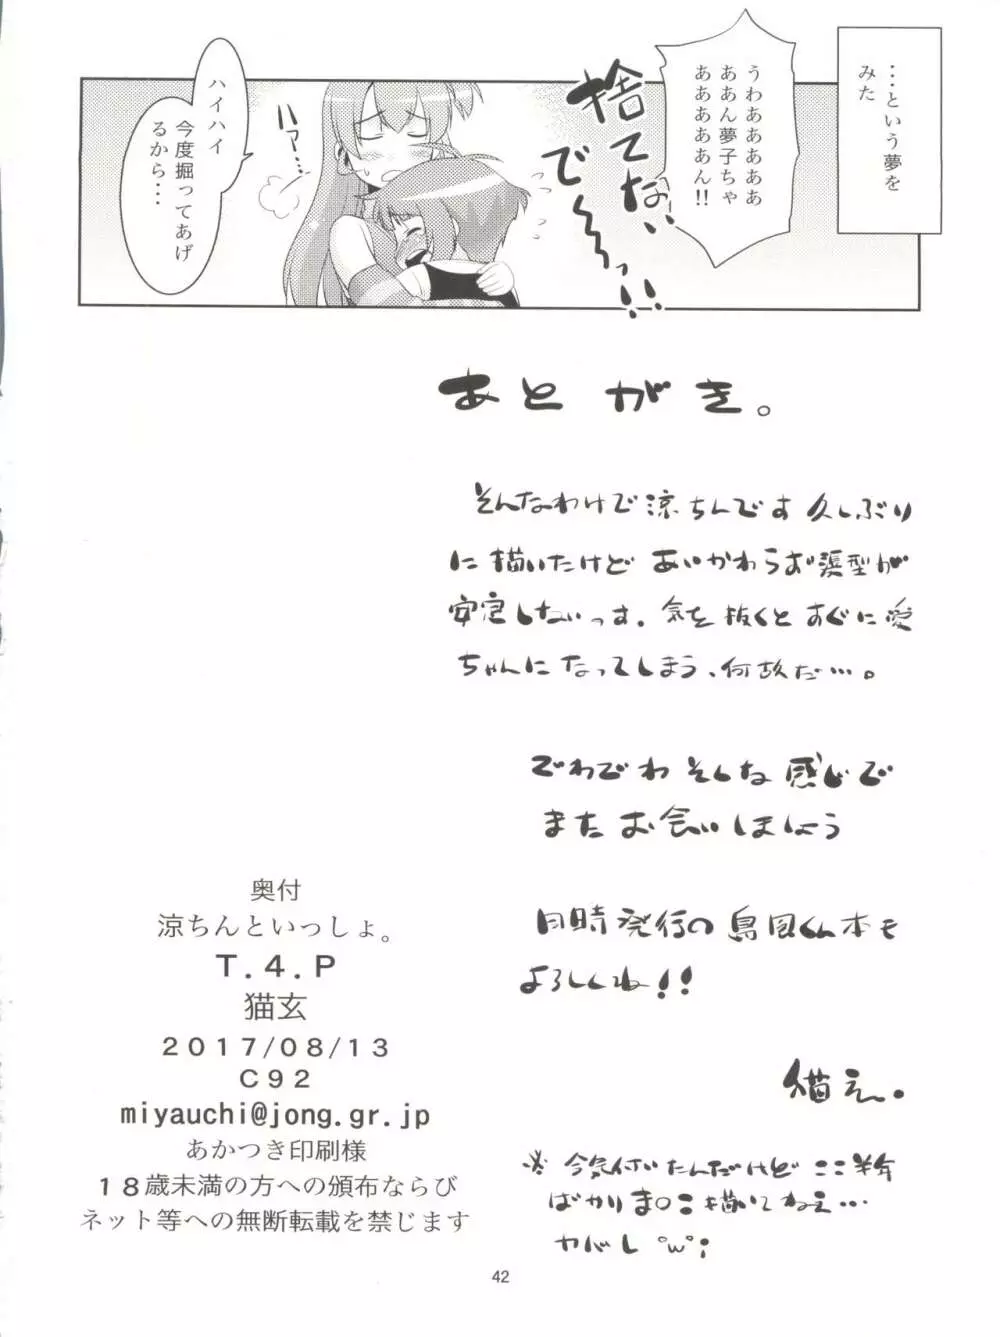 …という夢を
みた
うわあああああ
ああん夢子ちゃ
ああああああん!!
捨てない
で～～っ!!
ハァ…
ハイハイ
今度掘ってあげ
るから…
あとがき。
そんなわけで涼ちんです久しぶり
に描いたけどあいかわらず髪型が
安定しないっす。気を抜くとすぐに愛
ちゃんになってしまう、何故だ…。
でわでわそんな感じで
またお会いしましょう
同時発行の島風くん本も
よろしくね!!
猫玄。
※今気付いたんだけどここ半年
ばかりま○こを描いてねえ…
ヤバし °w°;
奥付
涼ちんといっしょ。
T.4.P
猫玄
2017/08/13
C92
miyauchi@jong.gr.jp
あかつき印刷様
18歳未満の方への頒布ならび
ネット等への無断転載を禁じます
42